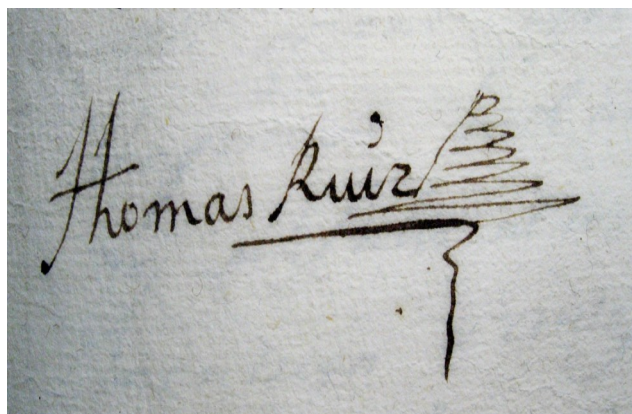 Thomas Ruiz